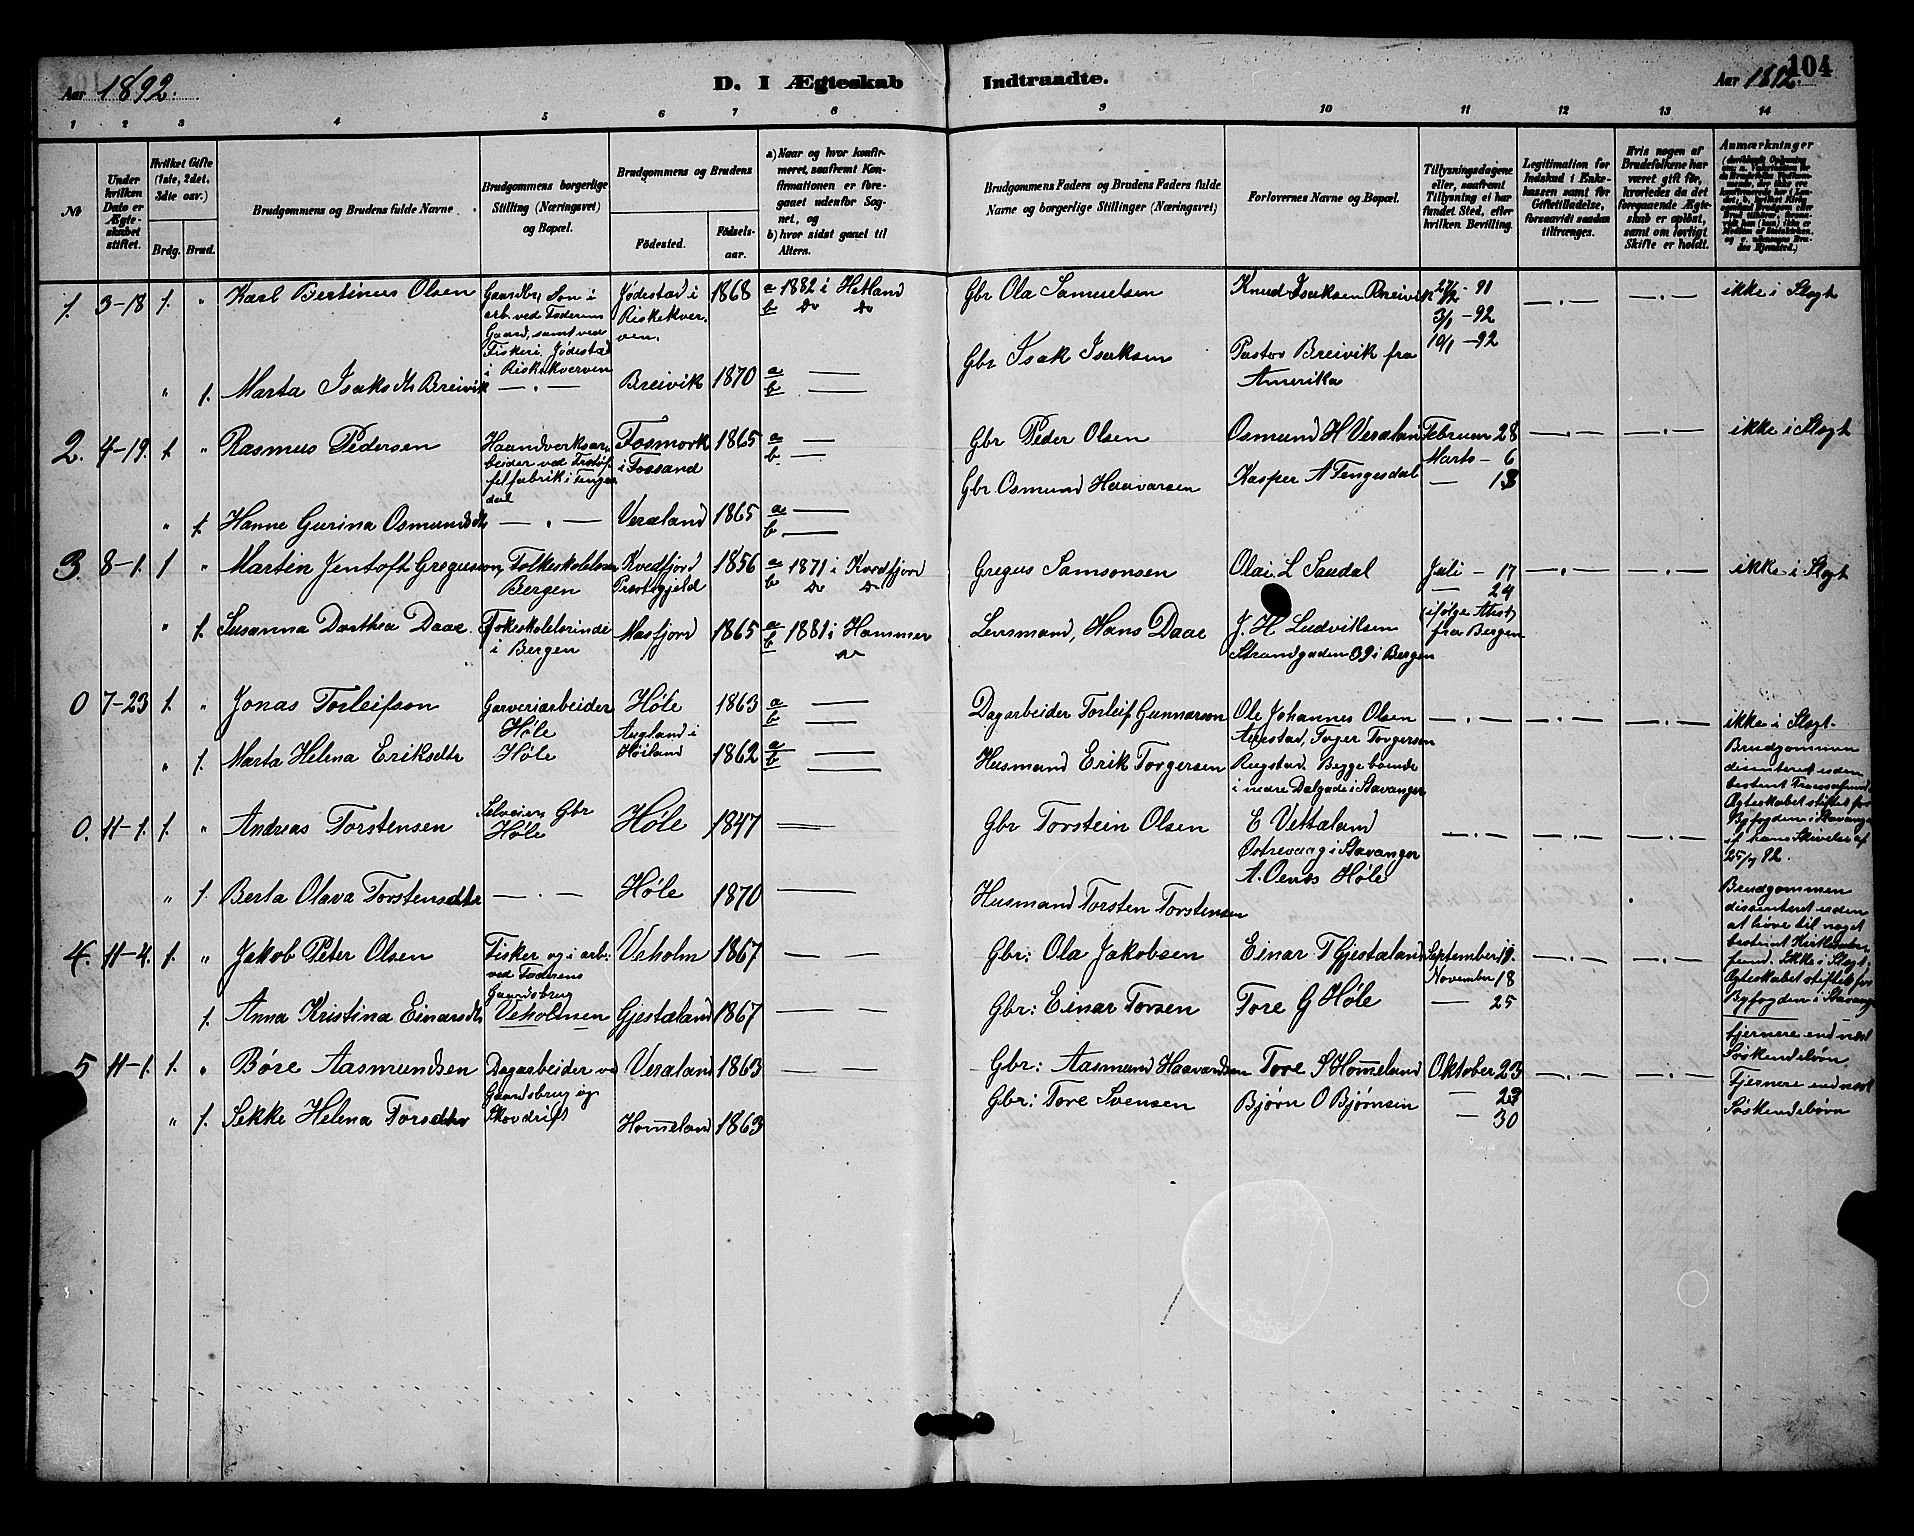 104
Aar 1892.
D. I Ægteskab Indtraadte.
Aar 1892.
1 2 3 4 5 6 7 8 9 10 11 12 13 14
№
Under hvilken Dato er Ægteskabet stiftet.
Hvilket Gifte (1ste, 2det, 3die osv.)
Brdg. Brud.
Brudgommens og Brudens fulde Navne
Brudgommens borgerlige Stilling (Næringsvei) og Bopæl.
Brudgommens og Brudens
Födested.
Födsels-aar.
a) Naar og hvor konfirmeret, saafremt Konfirmationen er foregaaet udenfor Sognet, og
b) hvor sidst gaaet til Alters.
Brudgommens Faders og Brudens Faders fulde Navne og borgerlige Stillinger (Næringsvei)
Forlovernes Navne og Bopæl.
Tillysningsdagene eller, saafremt Tillysning ei har fundet Sted, efter hvilken Bevilling.
Legitimation for Indskud i Enkekassen samt for Giftetilladelse, forsaavidt saadan tiltrænges.
Hvis nogen af Brudefolkene har været gift før, hvorledes da det foregaaende Ægteskab er opløst, samt om lovligt Skifte er holdt.
Anmærkninger
1. 3-18 1. " Karl Bertinus Olsen
Gaardbr. Søn i arb. ved Faderens Gaard, samt ved Fiskeri. Jødestad i Riskekverven
Jødestad i Riskekverven.
1868
a 1882 i Hetland
b Do Do
Gbr Ola Samuelsen
Knud Isaksen Breivik
27/12 - 91
3/1 - 92
10/1 - 92
ikke i Slegt
" 1. Marta Isaksdtr Breivik
Breivik 1870 a b
Gbr Isak Isaksen
Pastor Breivik fra Amerika
2. 4-19. 1 " Rasmus Pedersen
Haandverksarbeider ved
fabrik i Tengesdal
Fosmork i Fossand
1865 a b
Gbr Peder Olsen
Osmund H Veraland
Februar 28
Marts - 6
— 13
ikke i Slegt
" 1. Hanne Gurina Osmundsdtr
Veraland 1865 a b
Gbr Osmund Haavarsen
Kasper A Tengesdal
3. 8-1. 1 " Martin Jentoft Gregussen,
Folkeskolelærer Bergen
Kvedfjord Præstegjeld
1856
a 1871 i Kvedfjord
b Do Do
Gregus Samsonsen
Olai L Saudal
Juli - 17
— 24
(ifølge Attest fra Bergen
ikke i Slegt
" 1. Susanna Dorthea Daae.
i Bergen
Masfjord 1865
a 1881 i Hammer
b Do
Lensmand, Hans Daae
J. H Ludviksen
Strandgaden 39 i Bergen
0 7-23 1. " Jonas Torleifson
Garveriarbeider Høle
Høle 1863 a b
Dagarbeider Torleif Gunnarson
Ole Johannes Olsen
ikke i Slegt.
" 1. Marta Helena Eriksdtr
Høle
Augland i Høiland
1862 a b
Husmand Erik Torgersen
Torger Torgersen
Rugstad. Begge boende i nedre Dalgade i Stavanger
Brudgommen dissenteret uden bestemt
Ægteskabet stiftet for Byfogden i Stavanger
25/7 92.
0. 11-1. 1. " Andreas Torstensen
Selveier, Gbr Høle
Høle 1847
Gbr Torstein Olsen
E Vettaland
Østrevaag i Stavanger
" 1. Berta Olava Torstensdtr
Høle 1870
Husmand Torsten Torstensen
Høle
Brudgommen dissenteret uden at høre til noget bestemt
Ikke i Slegt.
Ægteskabet stiftet for Byfogden i Stavanger
4. 11-4. 1. " Jakob Peter Olsen
Fisker og i arb: ved Faderens Gaardsbrug Veholmen
Veholm 1867
Gbr: Ola Jakobsen
Einar T Gjestæland
September 19.
November 18
— 25
fjernere end næst Søskendebørn
1. Anna Kristina Einarsdtr
Gjestæland 1867
Gbr: Einar Torsen
Tore G Høle
5 11-1. 1. " Børe Aasmundsen
Dagarbeider ved Gaardsbrug og Skovdrift
Veraland 1863
Gbr: Aasmund Haavardsen
Tore S Homeland
Oktober 23
— 23
— 30
Fjernere end næst Søskendebørn
" 1. Sekke Helena Torsdtr
Homeland 1863
Gbr: Tore Svensen
Bjørn O Bjørnsen